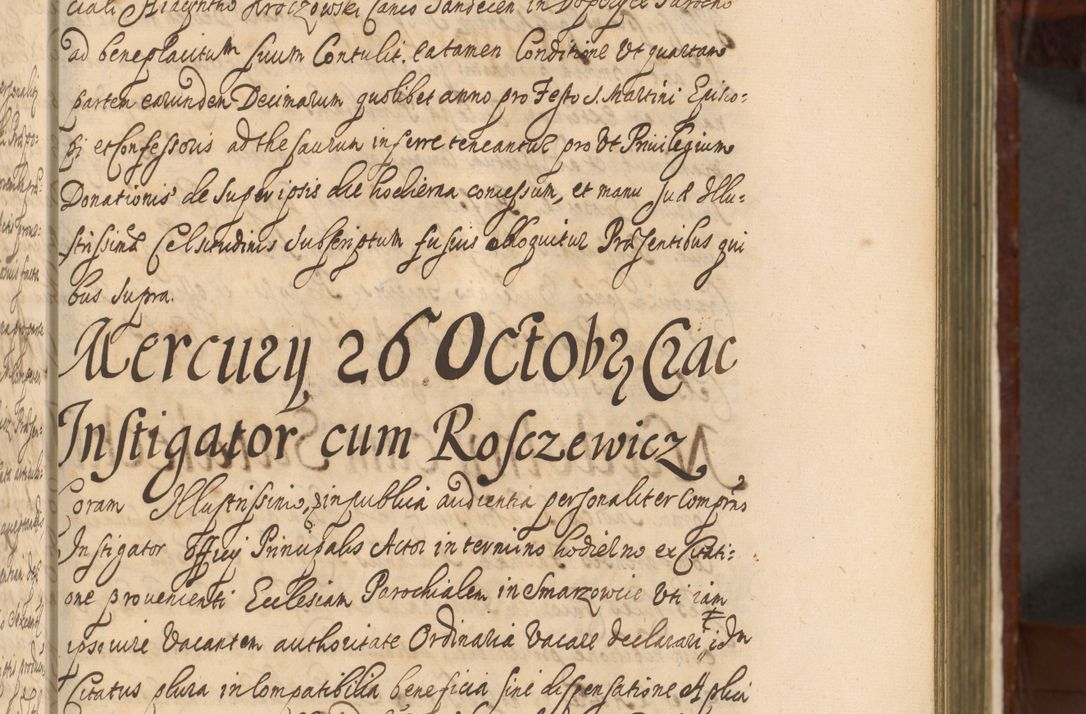 ciali Hiacyntho Kroczowski Canco Sandecen in Dopczyce Parocho
ad beneplacitum suum Contulit. ea tamen Conditione Vt quartam
partem earunden Decimarum quolibet anno pro Festo S. Martini Episco:
pi et Confessoris ad thesaurum inferre teneantur pro Vt Priuilegium
Donationis de super ipsis die hodierna concessum, et manu sua Illu:
strissima Celsitudinis Subscriptum fusius eloquitur Præsentibus qui
bus supra.
Mercurij 26 Octobr Crac
Instigator cum Rosczewicz
Coram Illustrissimo, in publica audientia personaliter Comprns
Instigator Officij Principalis Actor in termino hodierno ex Citati:
one provenienti Ecclesiam Parochialem in Smarzowice Vti iam
ipso iure Vacantem authoritate Ordinaria Vacare declarari, id
Citatus plura incompatibilia beneficia sine dispensatione Aplica